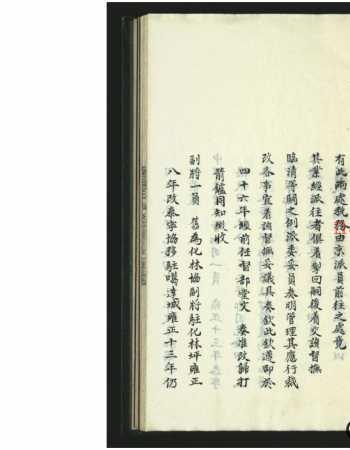 有此兩處稅務由京派員前往之處竟
其業經派往者俱着掣回嗣後着交該督撫
臨清等關之例派委妥員奏明管理其應行裁
改各事宜着該督撫妥議具奏欽此欽遵即於
四十六年經前任督部堂文 奏准改歸打
箭鑪同知徵收
副將一員 舊為化林協副將駐化林坪雍正
八年改泰寧協移駐噶達城雍正十三年仍